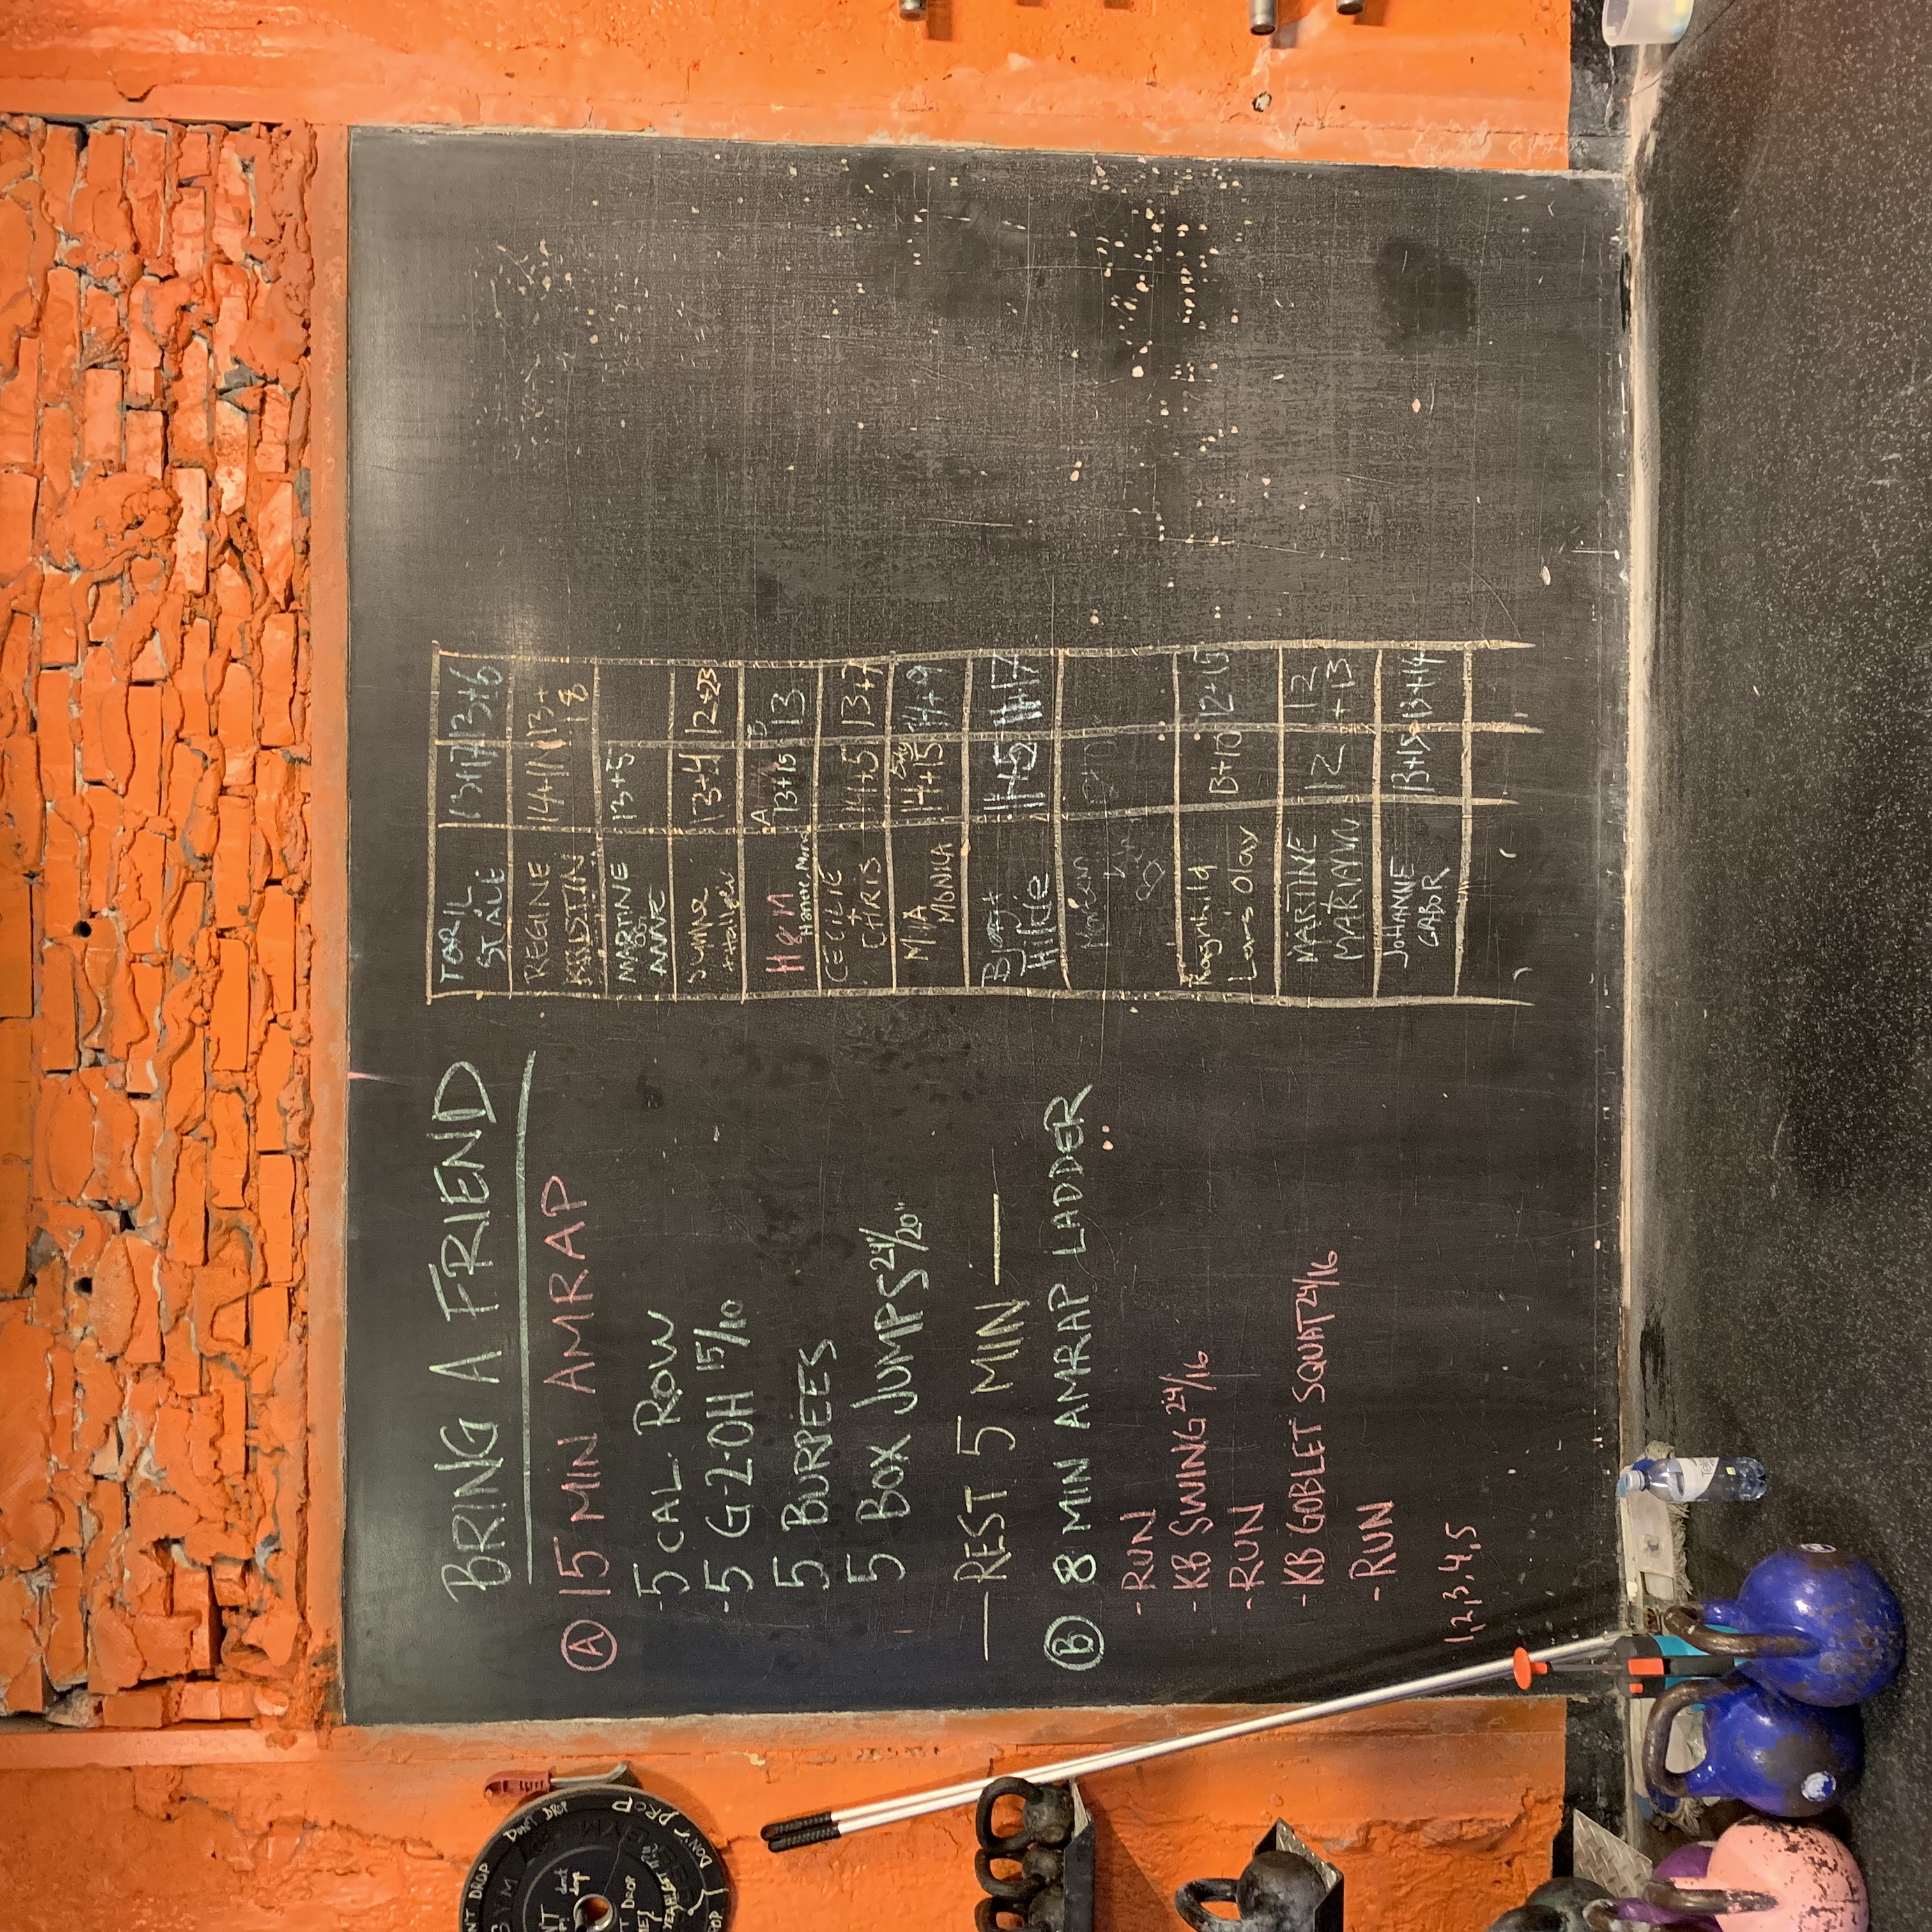 BRING A FRIEND
A 15 MIN AMRAP
-5 CAL. ROW
-5 G-2-OH 15/10
5 BURPEES
5 BOX JUMPS 24/20"
—REST 5 MIN—
B 8 MIN AMRAP LADDER
- RUN
- KB SWING 24/16
- RUN
- KB GOBLET SQUAT 24/16
- RUN
1,2,3,4,5
TORIL
STÅLE
13+17 13+6
REGINE
KRISTIN
14+11 13+
18
MARTINE
OG
ANNE
13+5
SYNNE
13+4 12+23
A B
H&M
Hanne, 
13+15 13
CECILIE
+
CHRIS
14+5 13+7
MIA
MONIKA
14+15 14+9
Hilde
11+5 11+17
Ragnhild
Lars Olav
13+10 12+15
MARTINE
MARIANN
12 12
+13
JOHANNE
GABOR
13+15 13+14
DON'T DROP
DON'T DROP
DROP
GYM